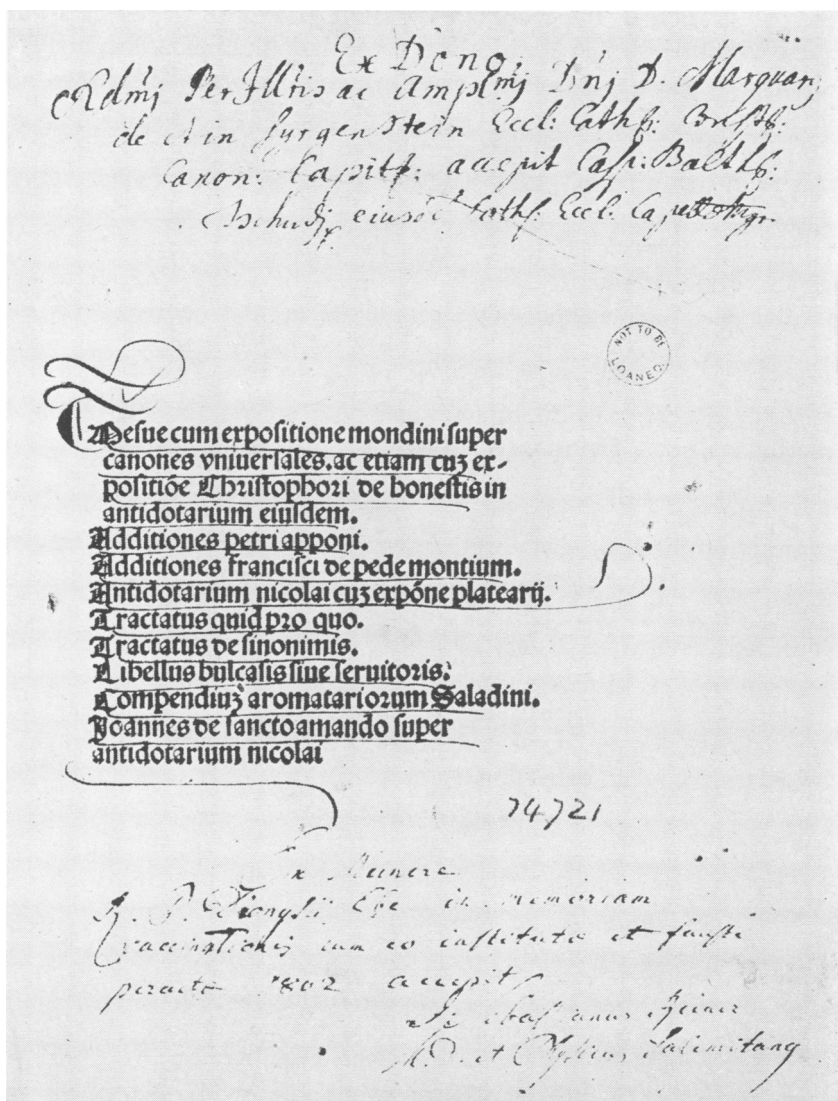 Ex Dono
Rdmj PerIllris ac Ampl.mj Dnj D. Marquar,
de A in Jurgenstein Eccl: Cath:
Canon: Capitt: accepit Casp: Balth:
Tschudj Cath: Eccl:
NOT TO BE
LOANED
Mesue cum expositione mondini super
canones vniuersales. ac etiam cuʒ ex-
positiōe Christophori de honestis in
antidotarium eiusdem.
Additiones petri apponi.
Additiones francisci de pede montium.
Antidotarium nicolai cuʒ expōne platearij.
Tractatus quid pro quo.
Tractatus de sinonimis.
Libellus bulcasis siue seruitoris:
Compendiuʒ aromatariorum Saladini.
Joannes de sancto amando super
antidotarium nicolai
74721
Ex Munere
R. P. Dionysii in memoriam
vaccinationis cum eo institutæ et fauste
peractæ 1802 accepit
M.D. et Physicus Salemitanus